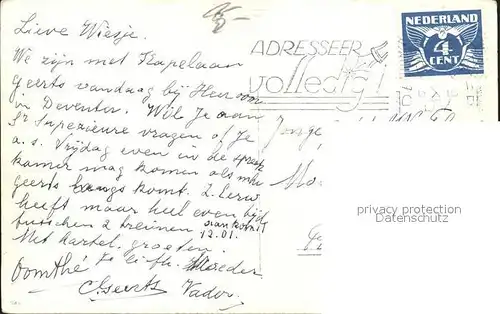 Lieve Wiesje.
We zijn met Kapelaan
Geerts vandaag bij Heeroom
in Deventer. Wil Je aan
Sr Superieure vragen of Je
a.s. Vrijdag even in de spreek
kamer mag komen als mr
Geerts langs komt. Z. Eerw
heeft maar heel even tijd
tusschen 2 treinen aankomst
12.01.
Met hartel. groeten.
Oomthé Moeder
Geerts Vader
ADRESSEER
volledig!
NEDERLAND
4
CENT
privacy protection
Datenschutz.